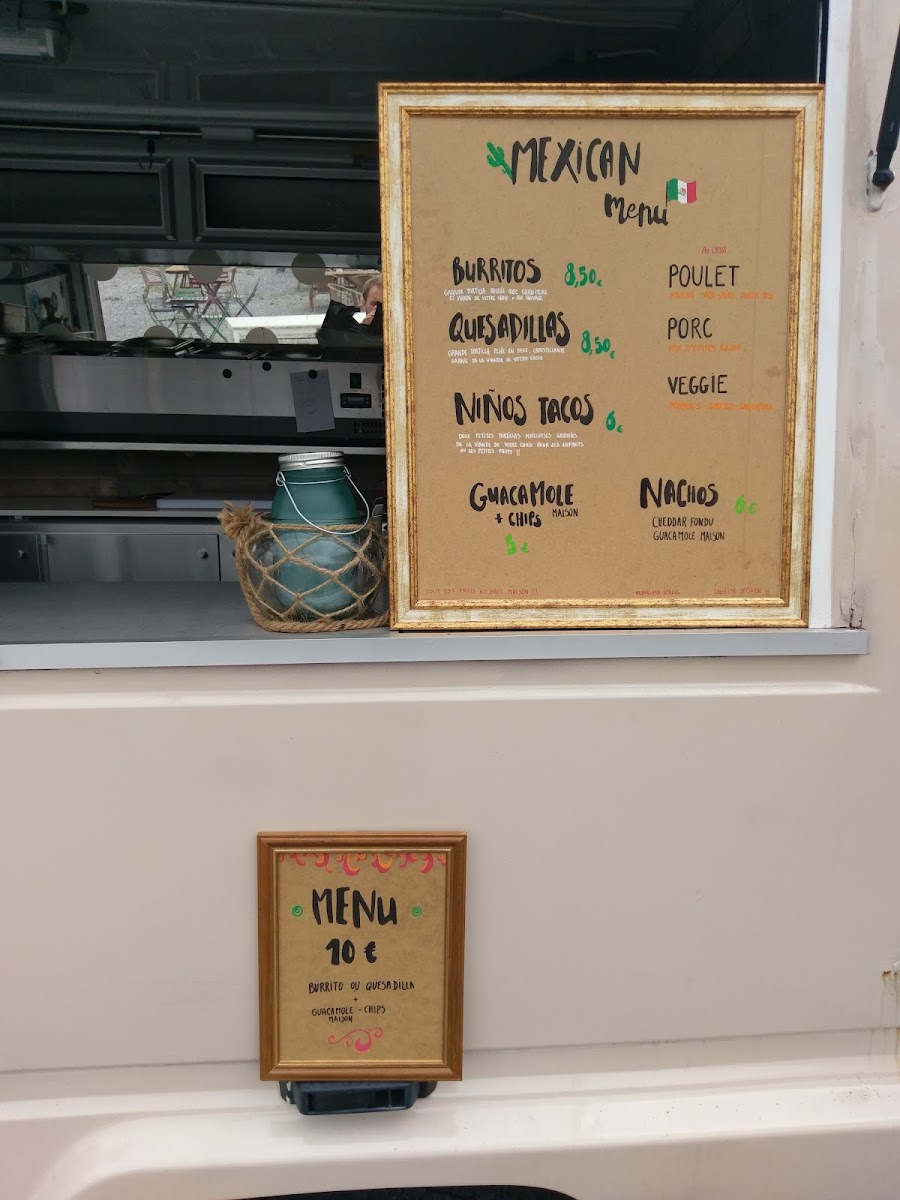 MEXICAN
menu
BURRITOS 8,50€
GRANDE TORTILLA ROULÉE AVEC GARNITURE
ET VIANDE DE VOTRE CHOIX
QUESADILLAS 8,50€
GRANDE TORTILLA PLIÉE EN DEUX, CROUSTILLANTE
GARNIE DE LA VIANDE DE VOTRE CHOIX
NIÑOS TACOS 6€
DEUX PETITES TORTILLAS MOELLEUSES GARNIES
DE LA VIANDE DE VOTRE CHOIX POUR LES ENFANTS
OU LES PETITES FAIMS !!
AU CHOIX
POULET
PORC
MIX D'ÉPICES
VEGGIE
GUACAMOLE
+ CHIPS MAISON
5€
NACHOS 6€
CHEDDAR FONDU
GUACAMOLE MAISON
TOUT EST FRAIS ET FAIT MAISON !!! ENGLISH SPOKEN
MENU
10 €
BURRITO OU QUESADILLA
+
GUACAMOLE - CHIPS
MAISON